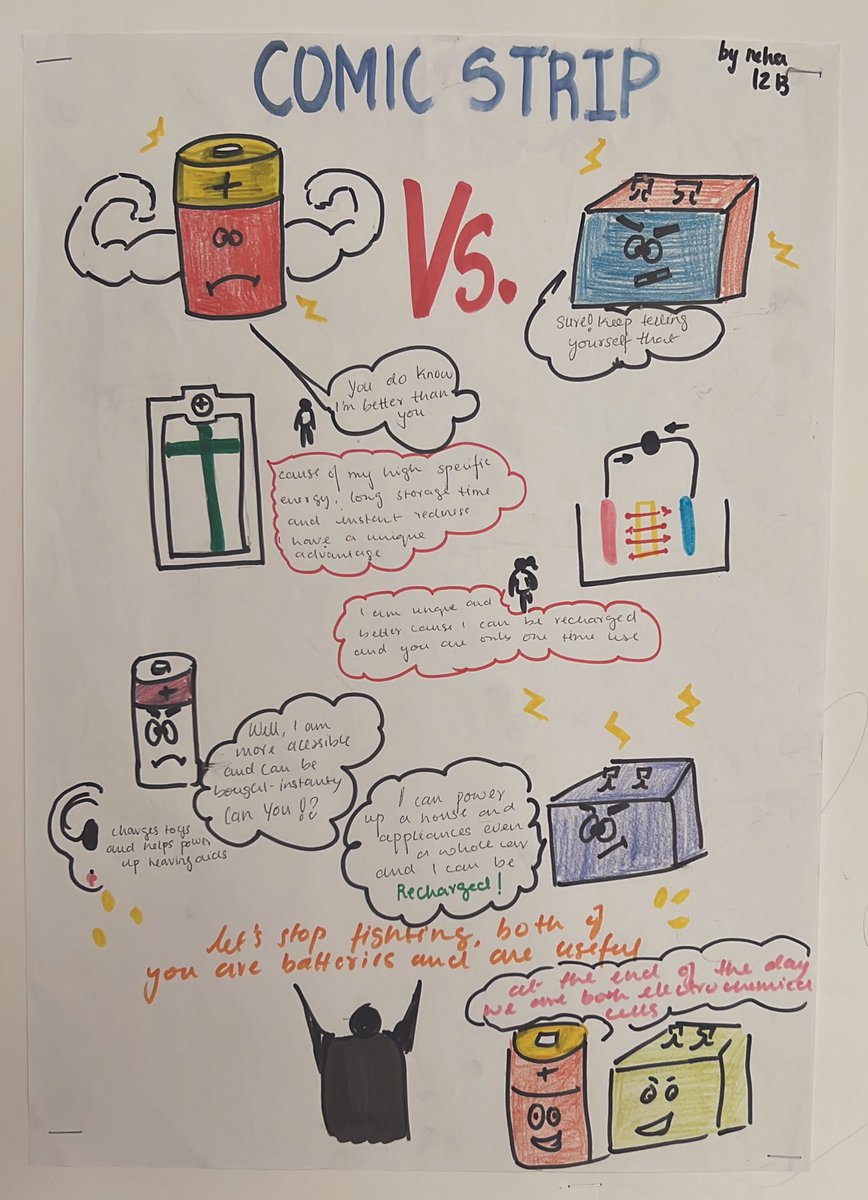 COMIC STRIP
by neha
12 B
Vs.
+
Sure! Keep telling
yourself that
You do know
I'm better than
you
+
cause of my high specific
energy, long storage time
and instant rediness
I have a unique
advantage
I am unique and
better cause I can be recharged
and you are only one time use
+
Well, I am
more acessible
and can be
bought instantly
Can You!?
charges toys
and helps power
up hearing aids
I can power
up a house and
appliances even
a whole car
and I can be
Recharged!
let's stop fighting, both of
you are batteries and are useful
at the end of the day
we are both electrochemical
cells
+